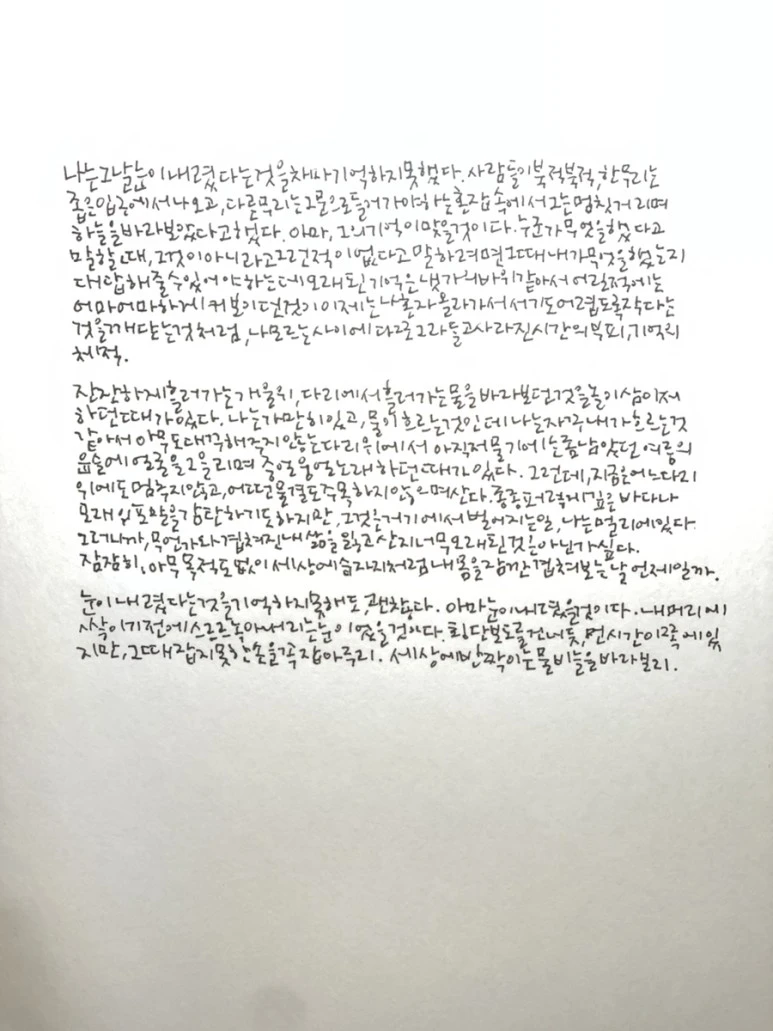 나는 그날 눈이 내렸다는 것을 채 다 기억하지 못했다. 사람들이 북적북적, 한 무리는
좁은 입구에서 나오고, 다른 무리는 그 문으로 들어가야 하는 혼잡 속에서 그는 멈칫거리며
하늘을 바라보았다고 했다. 아마, 그의 기억이 맞을 것이다. 누군가 무엇을 했다고
말할 때, 그것이 아니라고 그런 적이 없다고 말하려면 그때 내가 무엇을 했는지
대답해 줄 수 있어야 하는데 오래된 기억은 냇가의 바위 같아서 어릴 적에는
어마어마하게 커 보이던 것이 이제는 나 혼자 올라가서 서기도 어렵도록 작다는
것을 깨닫는 것처럼, 나 모르는 사이에 다 그라들고 사라진 시간의 부피, 기억의
체적.
잔잔하게 흘러가는 개울 위, 다리에서 흘러가는 물을 바라보던 것을 놀이 삼아
하던 때가 있다. 나는 가만히 있고, 물이 흐르는 것인데 나는 자꾸 내가 흐르는 것
같아서 아무도 대꾸해 주지 않는 다리 위에서 아직 저물기에는 좀 남았던 여름의
윤슬에 얼굴을 그을리며 중얼웅얼 노래하던 때가 있다. 그런데, 지금은 어느 다리
위에도 멈추지 않고, 어떤 물결도 주목하지 않으며 산다. 종종 퍼렇게 깊은 바다나
모래 위 포말을 감탄하기도 하지만, 그것은 거기에서 벌어지는 일, 나는 멀리에 있다.
그러니까, 무언가와 겹쳐진 내 삶을 잃고 산 지 너무 오래된 것은 아닌가 싶다.
잠잠히, 아무 목적도 없이 세상에 습자지처럼 내 몸을 잠깐 겹쳐 보는 날 언제일까.
눈이 내렸다는 것을 기억하지 못해도 괜찮다. 아마 눈이 내렸을 것이다. 내 머리에
쌓이기 전에 스르르 녹아 버리는 눈이었을 것이다. 횡단보도를 건너듯, 먼 시간이 이쪽에 있
지만, 그때 잡지 못한 손을 꼭 잡아 주리. 세상에 반짝이는 물비늘을 바라보리.